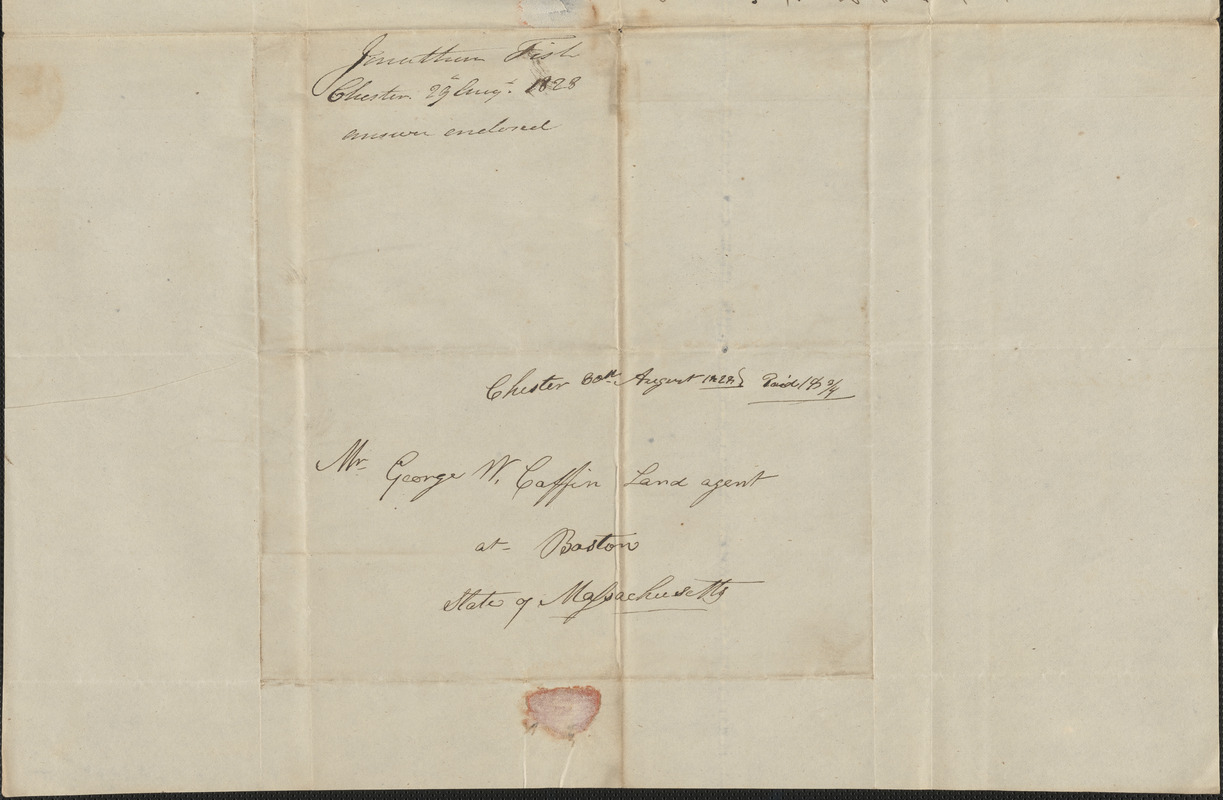 Jonathan Fish
Chester 29 Augt. 1828
answer enclosed
Chester 30th August 1828 Paid 18 3/4
Mr George W. Coffin Land agent
at Boston
State of Massachusetts